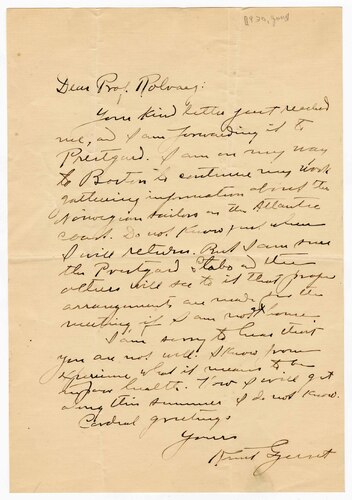 Dear Prof. Rolvaag:
Your kind letter just reached
me, and I am forwarding it to
Prestgard. I am on my way
to Boston to continue my work
gathering information about the
Norwegian sailors on the Atlantic
coast. Do not know just when
I will return. But I am sure
that Prestgard and the
others will see to it that proper
arrangements are made for the
meeting if I am not home.
I am sorry to hear that
you are not well. I know from
experience what it means to be
in poor health. How I will get
along this summer I do not know.
Cordial greetings
Yours
Knut Gjerset